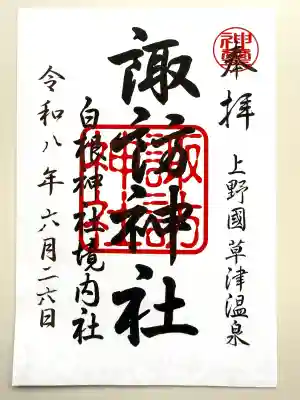 奉拝
上野國草津温泉
諏訪神社
諏訪神社
白根神社境内社
令和八年六月二六日